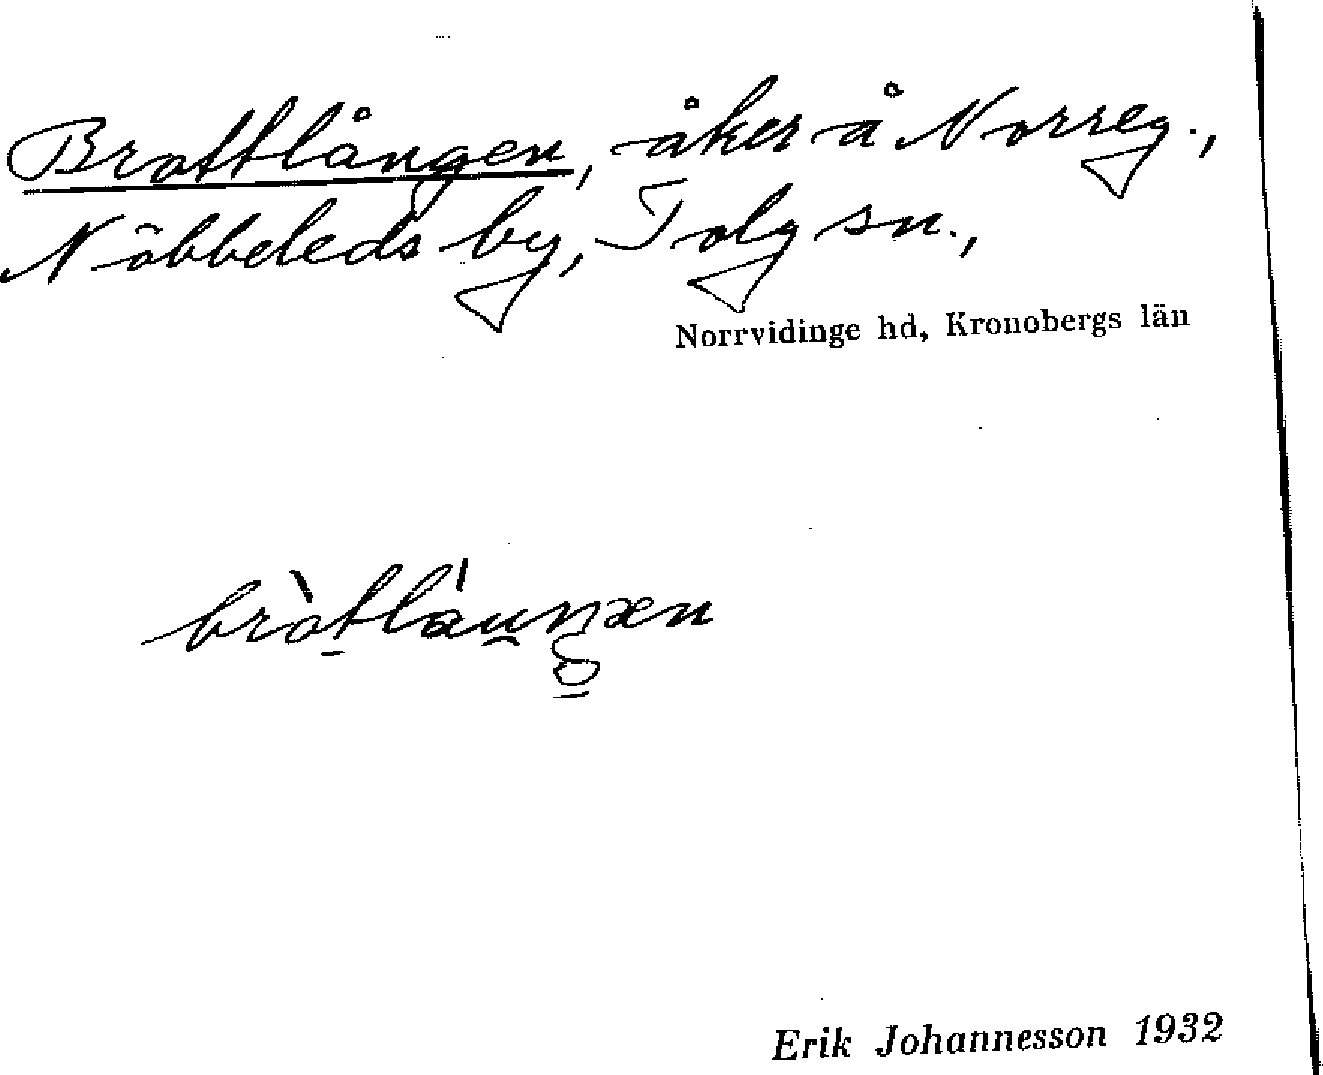 Brottlången, åker å Norreg.,
Nöbbeleds by, Tolg sn.,
Norrvidinge hd, Kronobergs län
bròtláuŋæn
Erik Johannesson 1932